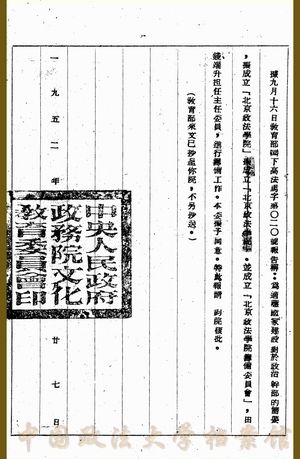 據九月十六日教育部(52)高法處字第〇二〇號報告稱：爲適應國家建設對於政治幹部的需要
，擬成立「北京政法學院」並成立「北京政法學院籌備委員會」，由
錢端升担任主任委員，進行籌備工作。本委擬予同意。特此報請 鈞院核批。
（教育部來文已抄送你院，不另抄送。）
一九五二年 廿七日
中央人民政府
政務院文化
教育委員會印
中国政法大学档案馆